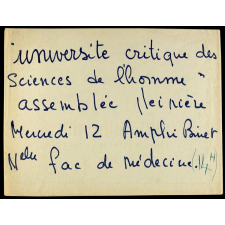 "université critique des
Sciences de l'homme"
assemblée pleinière
Mercredi 12 Amphi Binet
Nelle fac de médecine. (14H)